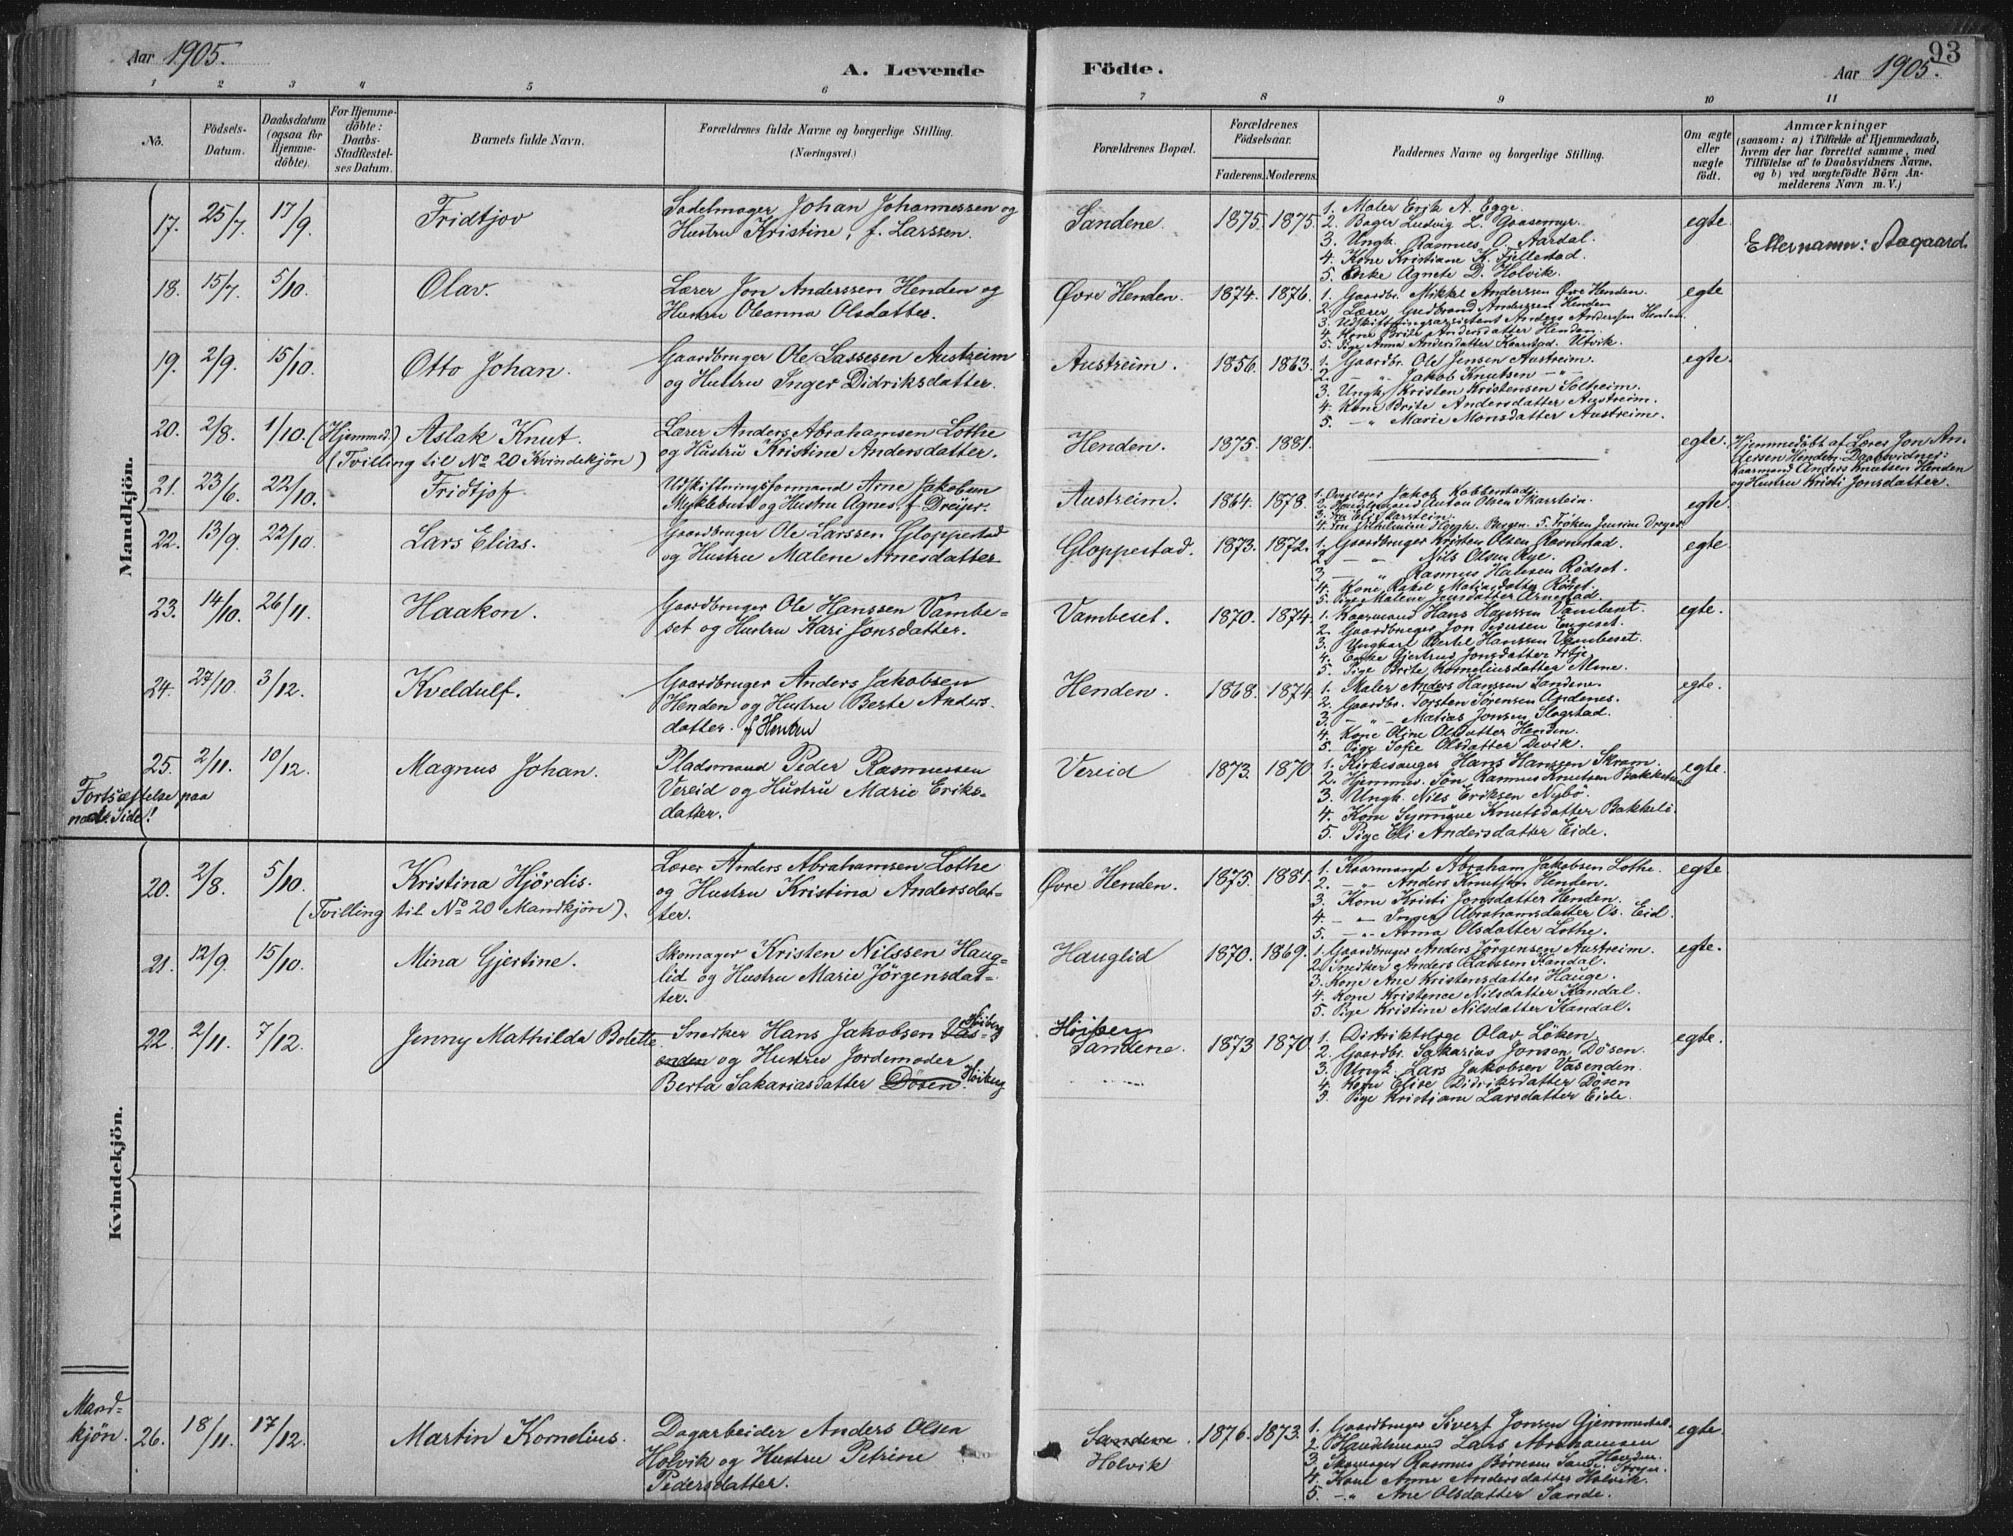 Aar 1905.
A. Levende
Födte.
Aar 1905.
93
1 2 3 4 5 6 7 8 9 10 11
No.
Födsels-
Datum.
Daabsdatum
(ogsaa for
Hjemme-
döbte).
For Hjemme-
döbte:
Daabs-
Stadfæstel-
ses Datum.
Barnets fulde Navn.
Forældrenes fulde Navne og borgerlige Stilling.
(Næringsvei.)
Forældrenes Bopæl.
Forældrenes
Födselsaar.
Faderens. Moderens.
Faddernes Navne og borgerlige Stilling.
Om ægte
eller
uægte
födt.
Anmærkninger
(saasom: a) i Tilfælde af Hjemmedaab,
hvem der har forrettet samme, med
Tilföielse af to Daabsvidners Navne,
og b) ved uægtefödte Börn An-
melderens Navn m. V.)
Mandkjön.
17. 25/7. 17/9. Fridtjov
Sadelmager Johan Johannessen og
Hustru Kristine, f. Larssen.
Sandene. 1875. 1875.
1. Maler Erik A. Egge.
2. Bager Ludvig L. Gaasemyr.
3. Ungk. Rasmus O. Aardal.
4. Kone Kristiane K. Fjellestad.
5. Enke Agnete D. Holvik.
egte.
Efternamn: Aagaard.
18. 15/7. 5/10. Olav.
Lærer Jon Anderssen Henden og
Hustru Oleanna Olsdatter.
Øvre Henden. 1874. 1876.
1. Gaardbr. Mikkel Anderssen Øvre Henden.
2. Lærer Gudbrand Anderssen Henden
3. Udskiftningsassistent Anders Andersen Henden
4. Kone Brite Andersdatter Henden.
5. Pige Anna Andersdatter Kaarstad. Utvik.
egte
19. 2/9. 15/10. Otto Johan.
Gaardbruger Ole Lassesen Austreim
og Hustru Inger Didriksdatter.
Austreim. 1856. 1863.
1. Gaardbr. Ole Jensen Austreim.
2. " Jakob Knutsen — " —
3. Ungk. Kristen Kristensen Solheim.
4. Kone Brite Andersdatter Austreim.
5. — " Marie Monsdatter Austreim.
egte.
20. 2/8. 1/10. (Hjemmed.) Aslak Knut.
(Tvilling til No 20 Kvindekjön)
Lærer Anders Abrahamsen Lothe
og Hustru Kristine Andersdatter.
Henden. 1875. 1881.
egte.
Hjemmedöbt af Lærer Jon An-
dersen Henden. Daabsvidner:
Kaarmand Anders Knutsen Henden
og Hustru Kristi Jonsdatter.
21. 23/6. 22/10. Fridtjof.
Udskiftningsformand Arne Jakobsen
Myklebust og Hustru Agnes, f. Dreyer.
Austreim. 1864. 1878.
2. Handelsmand Anton Olsen Skarstein.
3. Fru Eli Skarstein.
egte.
22. 13/9. 22/10. Lars Elias.
Gaardbruger Ole Larssen Gloppestad
og Hustru Malene Arnesdatter
Gloppestad. 1873. 1872.
1. Gaardbruger Kristen Olsen Ravnestad.
2. — " — Nils Olsen Rye.
3. — " Rasmus Hansen Rödset.
4. Kone Rakel Matiasdatter Rödset.
5. Pige Malene Jensdatter Arnestad.
egte
23. 14/10. 26/11. Haakon.
Gaardbruger Ole Hanssen Vambe-
set og Hustru Kari Jonsdatter.
Vambeset. 1870. 1874.
1. Kaarmand Hans Hanssen Vambeset.
2. Gaardbruger Jon Pedersen Engeset.
3. Ungkarl Bertel Hanssen Vambeset.
4. Enke Gjertrud Jonsdatter
5. Pige Brite Korneliusdatter Mine.
egte.
24. 27/10. 3/12. Kveldulf.
Gaardbruger Anders Jakobsen
Henden og Hustru Berte Anders-
datter. f Henden
Henden. 1868. 1874.
1. Maler Anders Hanssen Sandene.
2. Gaardbr. Torsten Sörensen Andenes.
3. — " — Matias Jonsen Slogstad.
4. Kone Oline Olsdatter Henden.
5. Pige Sofie Olsdatter Devik.
egte.
25. 2/11. 10/12. Magnus Johan.
Pladsmand Peder Rasmussen
Vereid og Hustru Marie Eriks-
datter.
Vereid 1873. 1870
1. Kirkesanger Hans Hanssen Skram.
2. Hjemmev. Sön Rasmus Knutsen Bakkelid
3. Ungk. Nils Eriksen Nybö.
4. Kone Synnöve Knutsdatter Bakkeli
5. Pige Eli Andersdatter Eide.
egte.
Fortsættelse paa
næste Side!
Kvindekjön.
20. 2/8. 5/10. Kristina Hjördis.
(Tvilling til No 20 Mandkjön).
Lærer Anders Abrahamsen Lothe
og Hustru Kristina Andersdat-
ter.
Øvre Henden. 1875. 1881.
1. Kaarmand Abraham Jakobsen Lothe.
2. — " — Anders Knutsen Henden.
3. Kone Kristi Jonsdatter Henden.
4. — " — Inger Abrahamsdatter Os. Eid.
5. — " — Anna Olsdatter Lothe.
egte
21. 12/9. 15/10. Mina Gjertine.
Skomager Kristen Nilssen Haug-
lid og Hustru Marie Jörgensdat-
ter.
Hauglid 1870. 1869.
1. Gaardbruger Anders Jörgensen Austreim.
2. Snedker Anders Larssen Kandal.
3. Kone Ane Kristensdatter Hauge.
4. Kone Kristence Nilsdatter Kandal.
5. Pige Kristine Nilsdatter Kandal.
egte.
22. 2/11. 7/12. Jenny Mathilda Bolette.
Snedker Hans Jakobsen Vas- Höiberg
enden og Hustru Jordemoder
Berta Sakariasdatter Dösen. Höiberg
Höiberg
Sandene. 1873 1870.
1. Distriktslæge Olav Löken
2. Gaardbr. Sakarias Jonsen Dösen.
3. Ungk. Lars Jakobsen Vasenden.
4. Kone Elise Didriksdatter Dösen
5. Pige Kristiane Larsdatter Eide.
egte.
Mand-
kjön.
26. 18/11. 17/12. Martin Kornelius.
Dagarbeider Anders Olsen
Holvik og Hustru Petrine
Pedersdatter.
Sandene.
Holvik 1876. 1873.
1. Gaardbruger Sivert Jonsen Gjemmestad.
2. Handelsmand Lars Abrahamsen
3. Skomager Rasmus
4. Kone Anne Andersdatter Holvik.
5. — " Ane Olsdatter Sande.
egte.